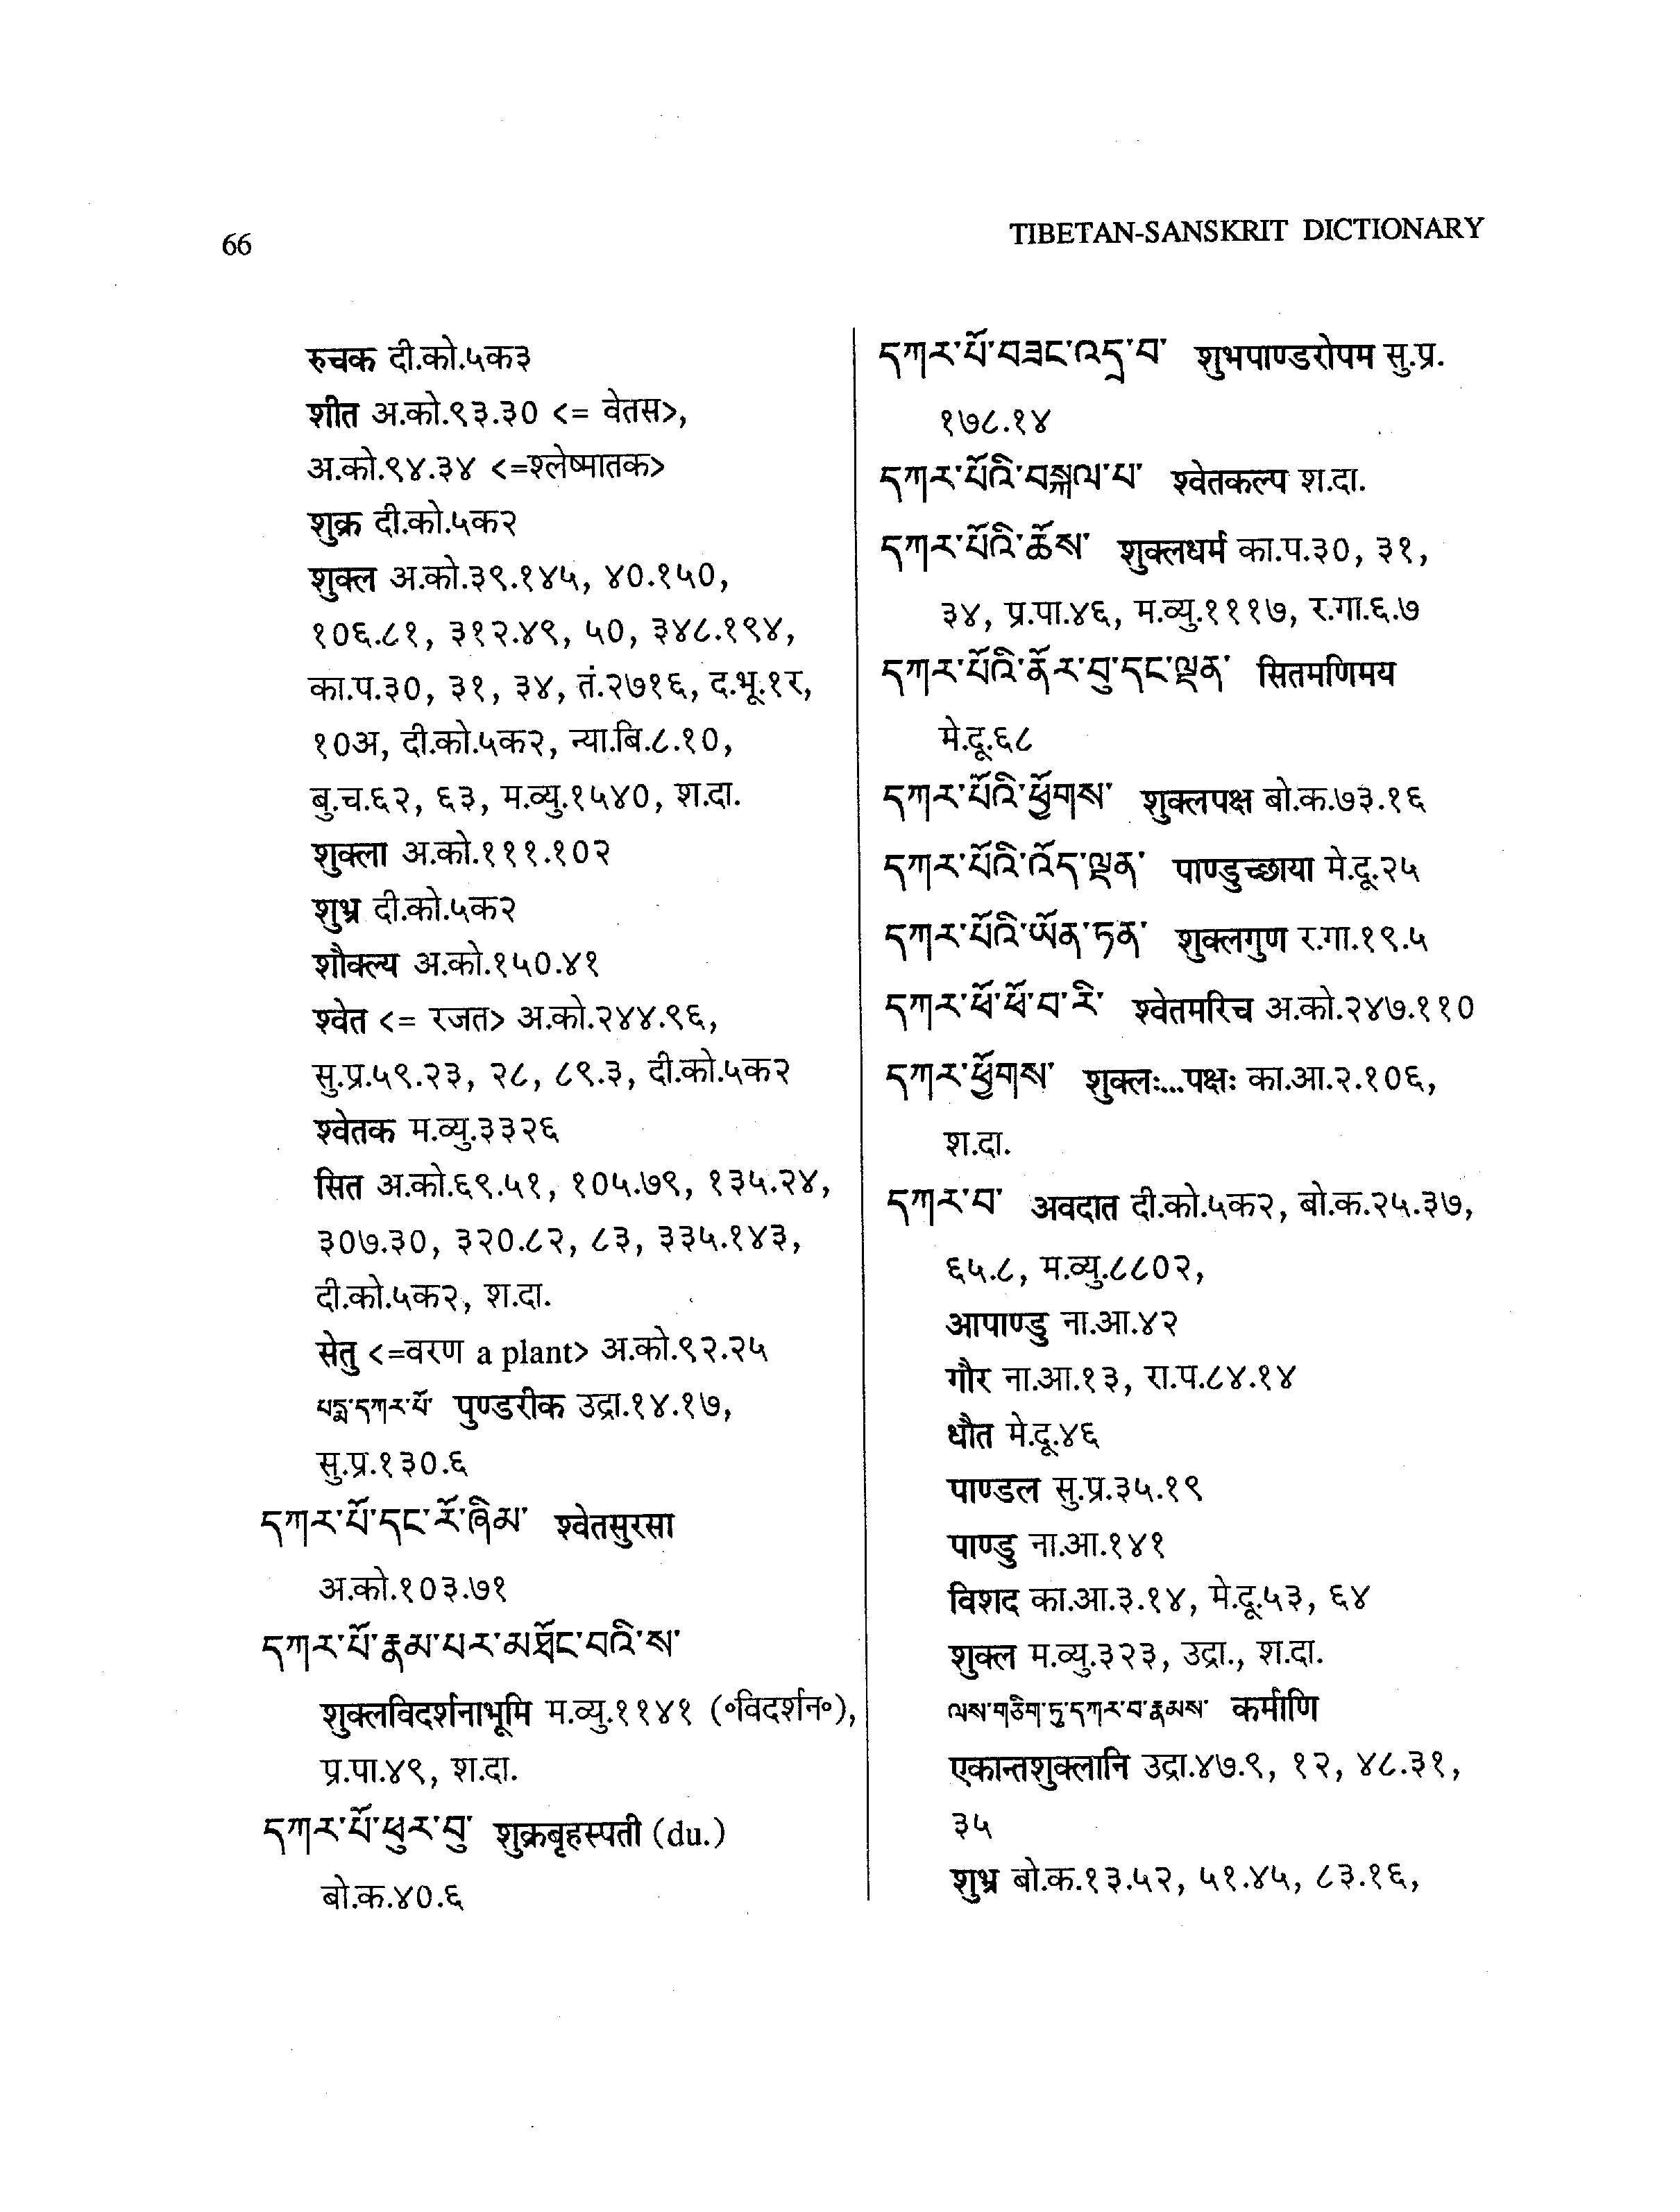 66
TIBETAN-SANSKRIT DICTIONARY
रुचक दी.को.५क३
शीत अ.को.९३.३० <= वेतस>,
अ.को.९४.३४ <=श्लेष्मातक>
शुक्र दी.को.५क२
शुक्ल अ.को.३९.१४५, ४०.१५०,
१०६.८१, ३१२.४९, ५०, ३४८.१९४,
का.प.३०, ३१, ३४, तं.२७१६, द.भू.१र,
१०अ, दी.को.५क२, न्या.बि.८.१०,
बु.च.६२, ६३, म.व्यु.१५४०, श.दा.
शुक्ला अ.को.१११.१०२
शुभ्र दी.को.५क२
शौक्ल्य अ.को.१५०.४१
श्वेत <= रजत> अ.को.२४४.९६,
सु.प्र.५९.२३, २८, ८९.३, दी.को.५क२
श्वेतक म.व्यु.३३२६
सित अ.को.६९.५१, १०५.७९, १३५.२४,
३०७.३०, ३२०.८२, ८३, ३३५.१४३,
दी.को.५क२, श.दा.
सेतु <=वरण a plant> अ.को.९२.२५
པདྨ་དཀར་པོ་ पुण्डरीक उद्रा.१४.१७,
सु.प्र.१३०.६
དཀར་པོ་དང་རོ་ཞིམ་ श्वेतसुरसा
अ.को.१०३.७१
དཀར་པོ་རྣམ་པར་མཐོང་བའི་ས་
शुक्लविदर्शनाभूमि म.व्यु.११४१ (॰विदर्शन॰),
प्र.पा.४९, श.दा.
དཀར་པོ་ཕུར་བུ་ शुक्रबृहस्पती (du.)
बो.क.४०.६
དཀར་པོ་བཟང་འདྲ་བ་ शुभपाण्डरोपम सु.प्र.
१७८.१४
དཀར་པོའི་བསྐལ་པ་ श्वेतकल्प श.दा.
དཀར་པོའི་ཆོས་ शुक्लधर्म का.प.३०, ३१,
३४, प्र.पा.४६, म.व्यु.१११७, र.गा.६.७
དཀར་པོའི་ནོར་བུ་དང་ལྡན་ सितमणिमय
मे.दू.६८
དཀར་པོའི་ཕྱོགས་ शुक्लपक्ष बो.क.७३.१६
དཀར་པོའི་འོད་ལྡན་ पाण्डुच्छाया मे.दू.२५
དཀར་པོའི་ཡོན་ཏན་ शुक्लगुण र.गा.१९.५
དཀར་ཕོ་ཕོ་བ་རི་ श्वेतमरिच अ.को.२४७.११०
དཀར་ཕྱོགས་ शुक्लः...पक्षः का.आ.२.१०६,
श.दा.
དཀར་བ་ अवदात दी.को.५क२, बो.क.२५.३७,
६५.८, म.व्यु.८८०२,
आपाण्डु ना.आ.४२
गौर ना.आ.१३, रा.प.८४.१४
धौत मे.दू.४६
पाण्डल सु.प्र.३५.१९
पाण्डु ना.आ.१४१
विशद का.आ.३.१४, मे.दू.५३, ६४
शुक्ल म.व्यु.३२३, उद्रा., श.दा.
ལས་གཅིག་ཏུ་དཀར་བ་རྣམས་ कर्माणि
एकान्तशुक्लानि उद्रा.४७.९, १२, ४८.३१,
३५
शुभ्र बो.क.१३.५२, ५१.४५, ८३.१६,